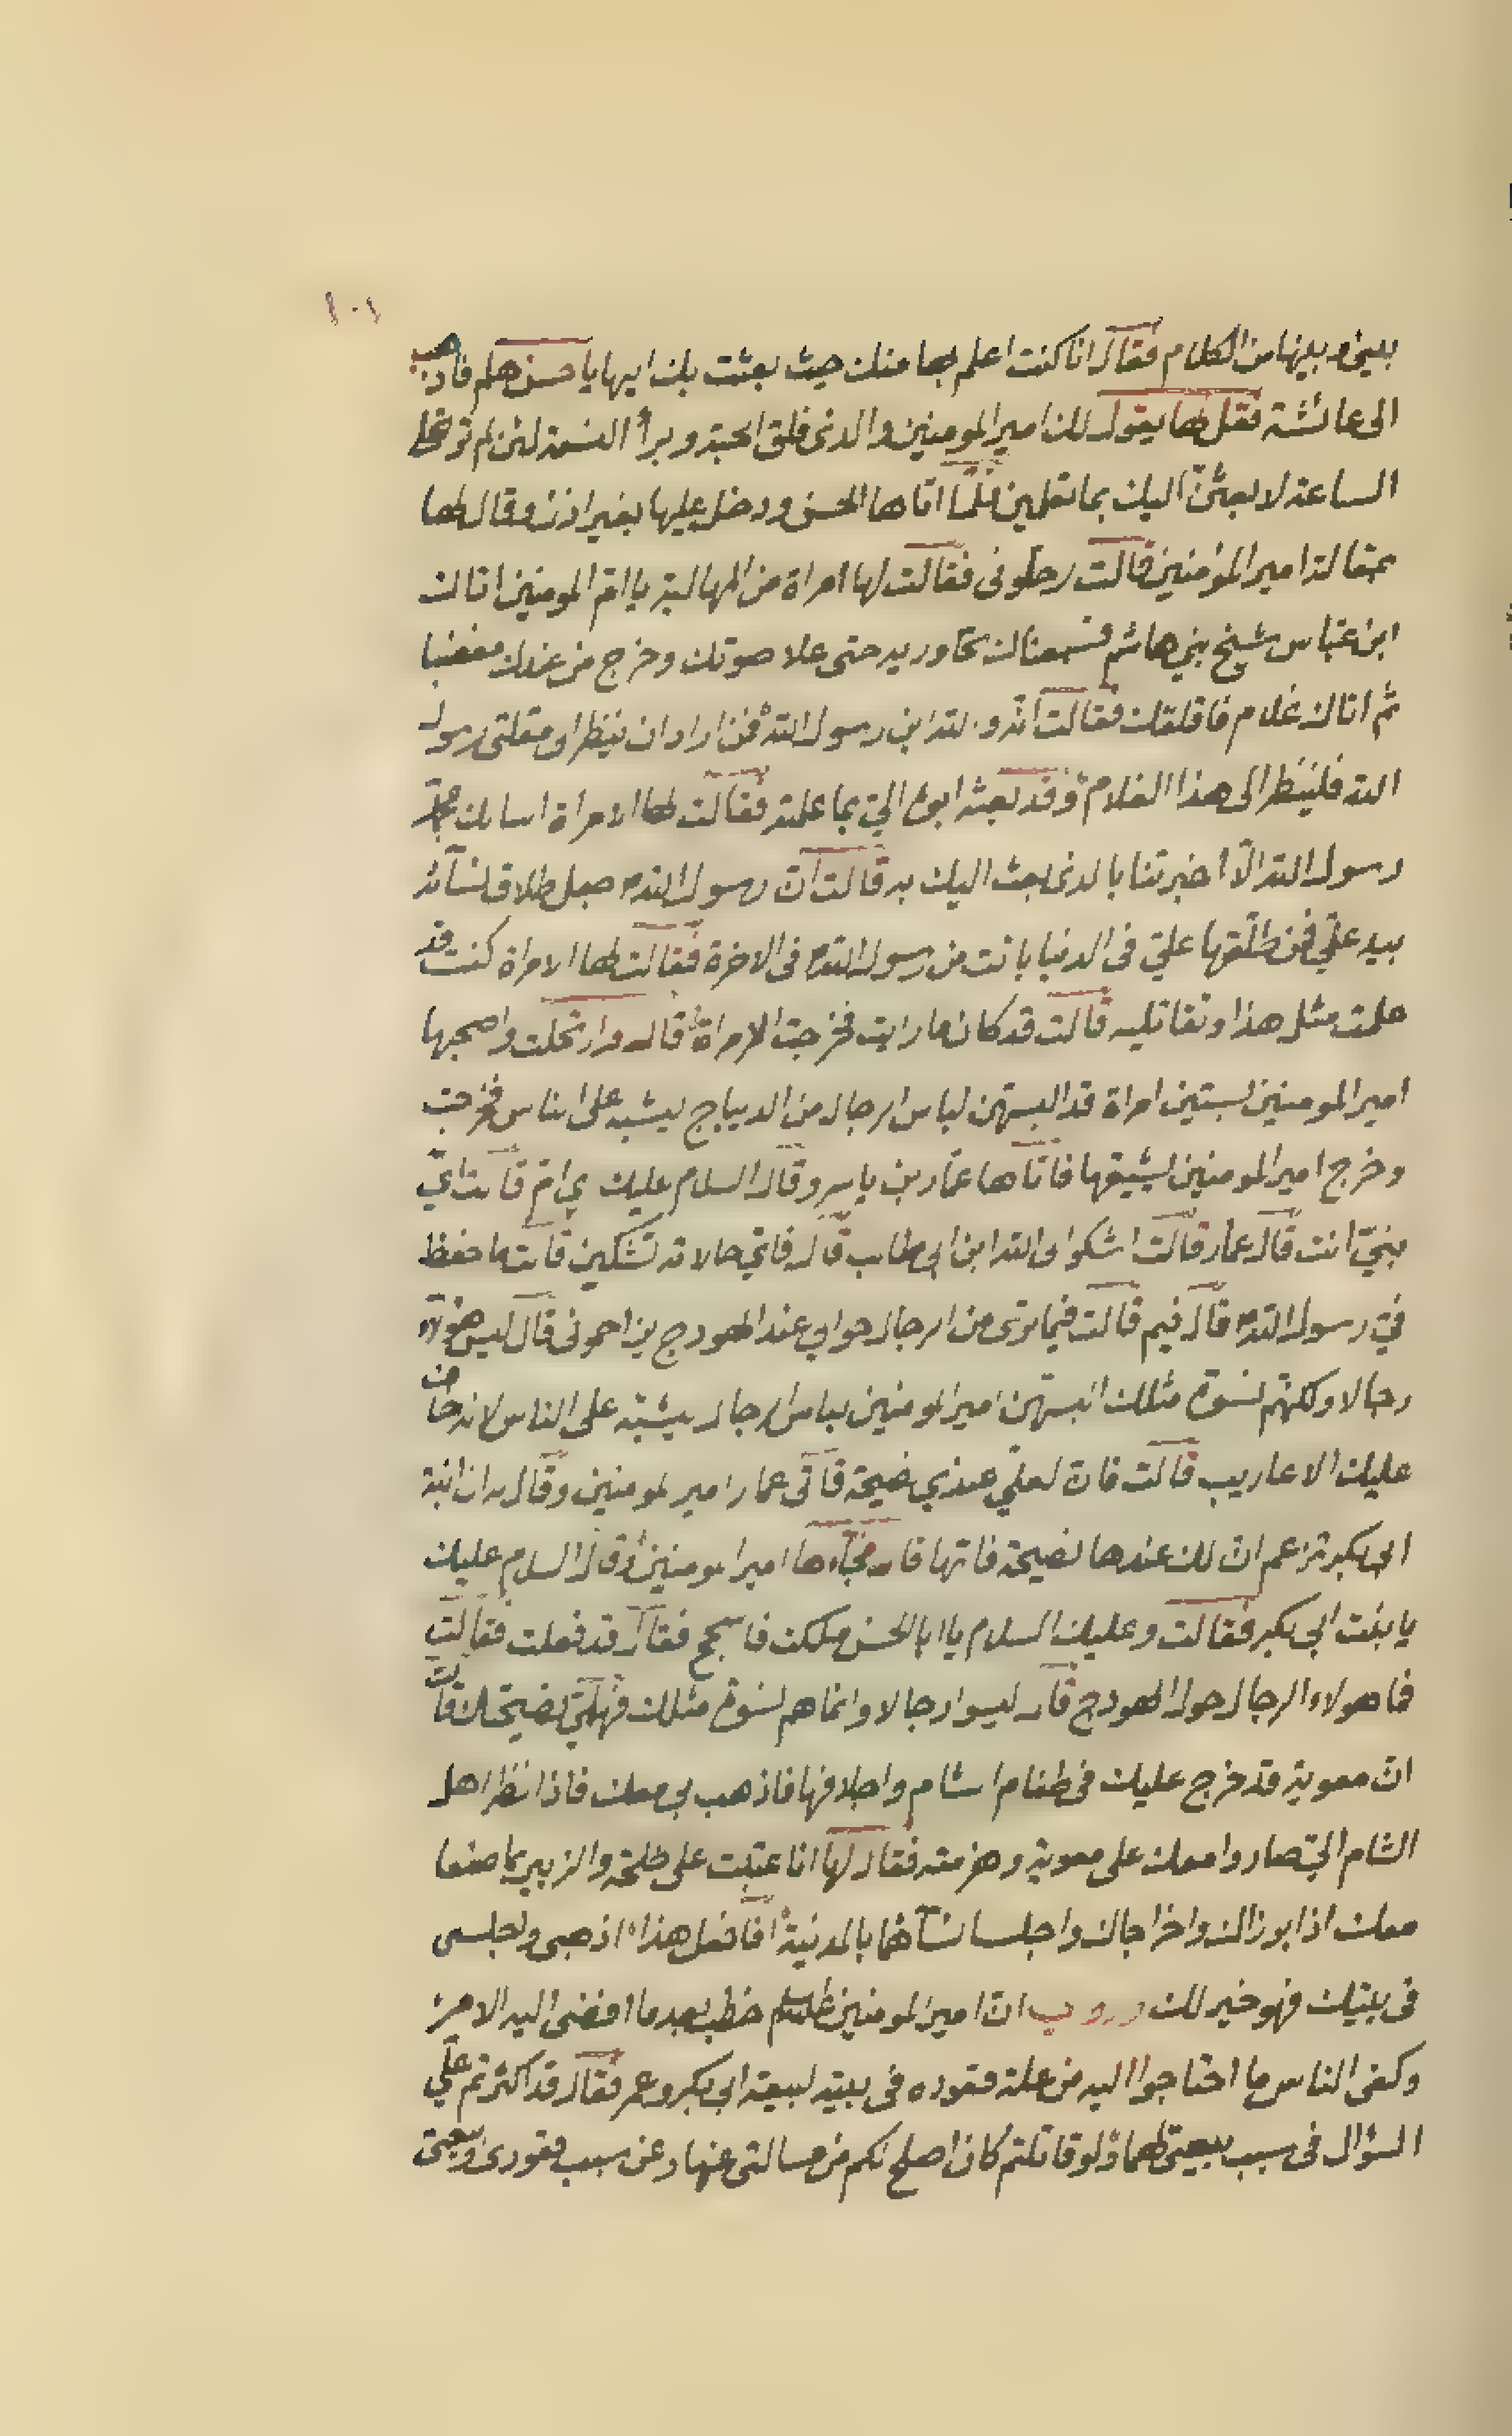 ١٠١
بيني وبينها من الكلام فقال انا كنت اعلم بها منك حيث بعثت بك اليها يا حسن هلم فاذهب
الى عائشة فقل لها يقول لك امير المومنين والذى فلق الحبة وبرأ النسمة لئن لم ترتحلى
الساعة لابعثنّ اليك بما تعلمين فلمّا اتاها الحسن ودخل عليها بغير اذن وقال لها
بمقالة امير المؤمنين قالت رحلونى فقالت لها امراة من المهالبة يا امّ المومنين اتاك
ابن عبّاس شيخ بني هاشم فسمعناك تحاوريه حتى علا صوتك وخرج من عندك مغضبا
ثم اتاك غلام فاقلقك فقالت انّه والله ابن رسول الله فمن اراد ان ينظر الى مقلتى رسول
الله فلينظر الى هذا الغلام وقد بعثه ابوه اليّ بما علمته فقالت لها الامراة اسالك بحق
رسول الله الّا اخبرتنا بالذى بعث اليك به قالت انّ رسول الله جعل طلاق نسآئه
بيد عليّ فمن طلّقها عليّ فى الدنيا بانت من رسول الله فى الاخرة فقالت لها الامراة كنت قد
علمت مثل هذا وتقاتليه قالت قد كان ما رايت فخرجت الامراة قال وارتحلت واصحبها
امير المومنين بستين امراة قد البسهن لباس الرجال من الديباج ليشبه على الناس فخرجت
وخرج امير المومنين ليشيعها فاتاها عمّار بن ياسر وقال السلام عليك يا امّ قالت ايّ
بنيّ انت قال عمار قالت اشكو الى الله ابن ابي طالب قال فاتي حالاته تشكين قالت ما حفظ
فيّ رسول الله قال فيم قالت فيما ترى من الرجال حولي عند الهودج يزاحمونى قال ليس هؤلاء
رجالا ولكنهم نسوة مثلك البسهن امير المومنين لباس الرجال يشبّه على الناس لانه خاف
عليك الاعاريب قالت فان لعليّ عندي نصيحة فاتى عمار امير المومنين وقال له ان ابنة
ابى بكر تزعم ان لك عندها نصيحة فاتها قال فجآءها امير المومنين وقال السلام عليك
يا بنت ابي بكر فقالت وعليك السلام يا ابا الحسن ملكت فاسجح فقال قد فعلت فقالت
فما هولاء الرجال حول الهودج قال ليسوا رجالا وانما هم نسوة مثلك فهلمّي نصيحتك قالت
ان معوية قد خرج عليك فى طغام الشام واجلافها فاذهب بي معك فاذا نظر اهل
الشام اليّ صاروا معك على معوية وهزمته فقال لها انا عتبت على طلحة والزبير بما صنعا
معك اذ ابرزاك واخرجاك واجلسا نسآئهما بالمدينة افافعل هذا اذهبى واجلسى
فى بيتك فهو خير لك وروي ان امير المومنين خطب بعد ما افضى اليه الامر
وكفى الناس ما احتاجوا اليه من علة قعوده فى بيته لبيعة ابي بكر وعمر فقال قد اكثرتم عليّ
السؤال فى سبب بيعتى لهما ولو قاتلتم كان اصلح لكم من مسالتى عنها وعن سبب قعودى وبيعتى